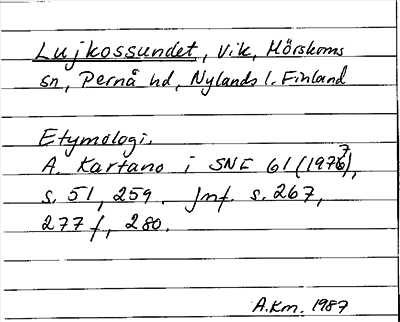 Lujkossundet, vik, Mörskoms
sn, Pernå hd, Nylands l. Finland
Etymologi.
A. Kartano i SNE 61 (1977),
s. 51, 259. Jnf. s. 267,
277 f, 280.
A.Km. 1987